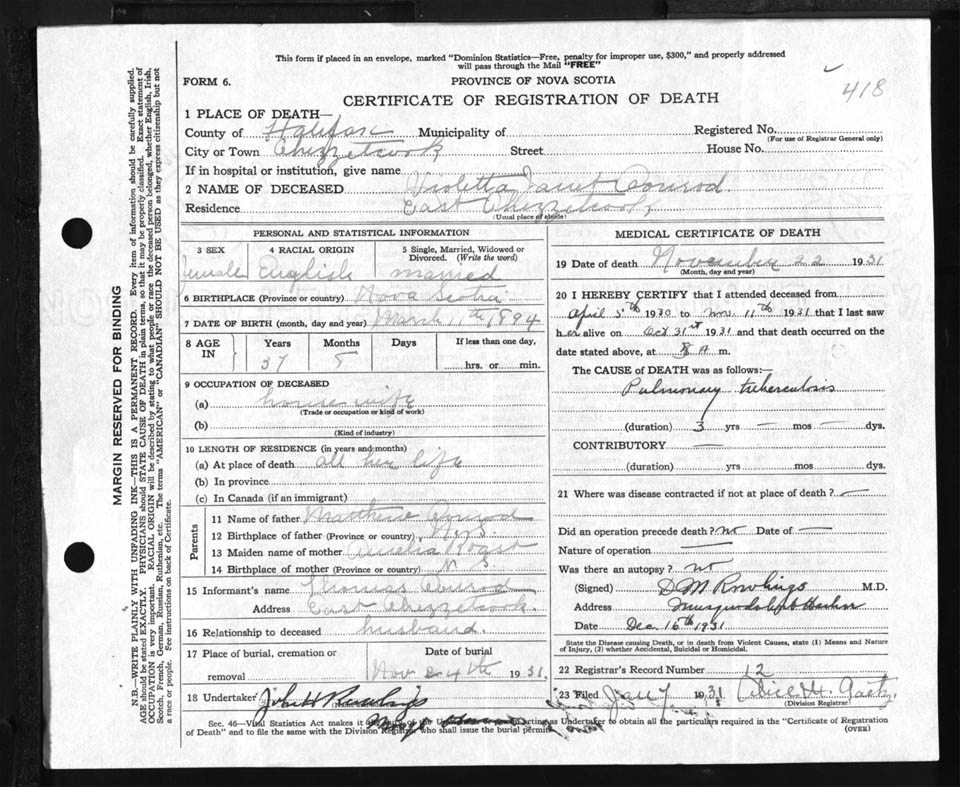 This form if placed in an envelope, marked "Dominion Statistics—Free, penalty for improper use, $300," and properly addressed
will pass through the Mail "FREE"
FORM 6.
PROVINCE OF NOVA SCOTIA
418
CERTIFICATE OF REGISTRATION OF DEATH
1 PLACE OF DEATH—
County of Halifax Municipality of Registered No.
(For use of Registrar General only)
City or Town Chezzetcook Street House No.
If in hospital or institution, give name
2 NAME OF DECEASED Violetta Janet Conrod
Residence East Chezzetcook
(Usual place of abode)
PERSONAL AND STATISTICAL INFORMATION
3 SEX 4 RACIAL ORIGIN 5 Single, Married, Widowed or
Divorced. (Write the word)
female English married
6 BIRTHPLACE (Province or country) Nova Scotia
7 DATE OF BIRTH (month, day and year) March 11th 1894
8 AGE IN Years Months Days If less than one day,
37 8 hrs. or min.
9 OCCUPATION OF DECEASED
(a) house wife
(Trade or occupation or kind of work)
(b)
(Kind of industry)
10 LENGTH OF RESIDENCE (in years and months)
(a) At place of death all her life
(b) In province
(c) In Canada (if an immigrant)
Parents
11 Name of father Matthew Conrod
12 Birthplace of father (Province or country) N S
13 Maiden name of mother Amelia Roast
14 Birthplace of mother (Province or country) N S
15 Informant's name Thomas Conrod
Address East Chezzetcook.
16 Relationship to deceased husband.
17 Place of burial, cremation or Date of burial
removal Nov 24th 1931
18 Undertaker
MEDICAL CERTIFICATE OF DEATH
19 Date of death November 22 1931
(Month, day and year)
20 I HEREBY CERTIFY that I attended deceased from
April 5th 1930 to Nov. 11th 1931 that I last saw
her alive on Oct 31st 1931 and that death occurred on the
date stated above, at 8 A m.
The CAUSE of DEATH was as follows:—
Pulmonary tuberculosis
(duration) 3 yrs — mos — dys.
CONTRIBUTORY —
(duration) yrs mos dys.
21 Where was disease contracted if not at place of death? —
Did an operation precede death? no Date of —
Nature of operation —
Was there an autopsy? no
(Signed) D M Rowlings M.D.
Address Musquodoboit Harbor
Date Dec. 16th 1931
State the Disease causing Death, or in death from Violent Causes, state (1) Means and Nature
of Injury, (2) whether Accidental, Suicidal or Homicidal.
22 Registrar's Record Number 12
23 Filed Jan 7 1931 Alice M. Gaetz
(Division Registrar)
Sec. 46—Vital Statistics Act makes it acting as Undertaker to obtain all the particulars required in the "Certificate of Registration
of Death" and to file the same with the Division Registrar who shall issue the burial permit
(OVER)
MARGIN RESERVED FOR BINDING
N.B.—WRITE PLAINLY WITH UNFADING INK—THIS IS A PERMANENT RECORD. Every item of information should be carefully supplied.
AGE should be stated EXACTLY. PHYSICIANS should STATE CAUSE OF DEATH in plain terms, so that it may be properly classified. Exact statement of
OCCUPATION is very important. RACIAL ORIGIN will be described by stating to what people or race the deceased person belonged, whether English, Irish,
Scotch, French, German, Russian, Ruthenian, etc. The terms "AMERICAN" or "CANADIAN" SHOULD NOT BE USED as they express citizenship but not
a race or people. See instructions on back of Certificate.